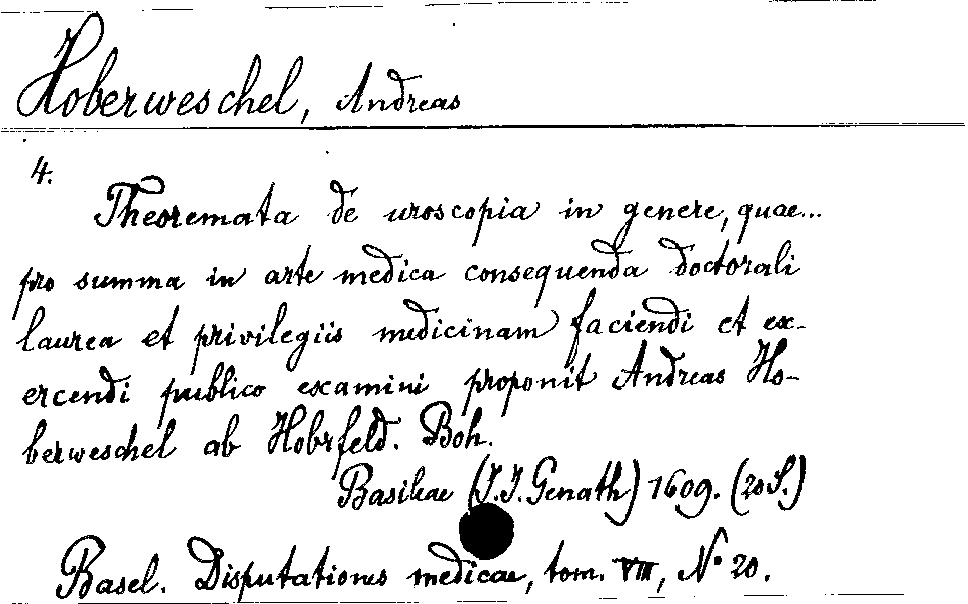 Hoberweschel, Andreas
4.
Theoremata de uroscopia in genere, quae...
pro summa in arte medica consequenda doctorali
laurea et privilegiis medicinam faciendi et ex-
ercendi publico examini proponit Andreas Ho-
berweschel ab Hobrfeld. Boh.
Basileae (J.J. Genath) 1609. (20 S.)
Basel. Disputationes medicae, tom. VIII, No 20.